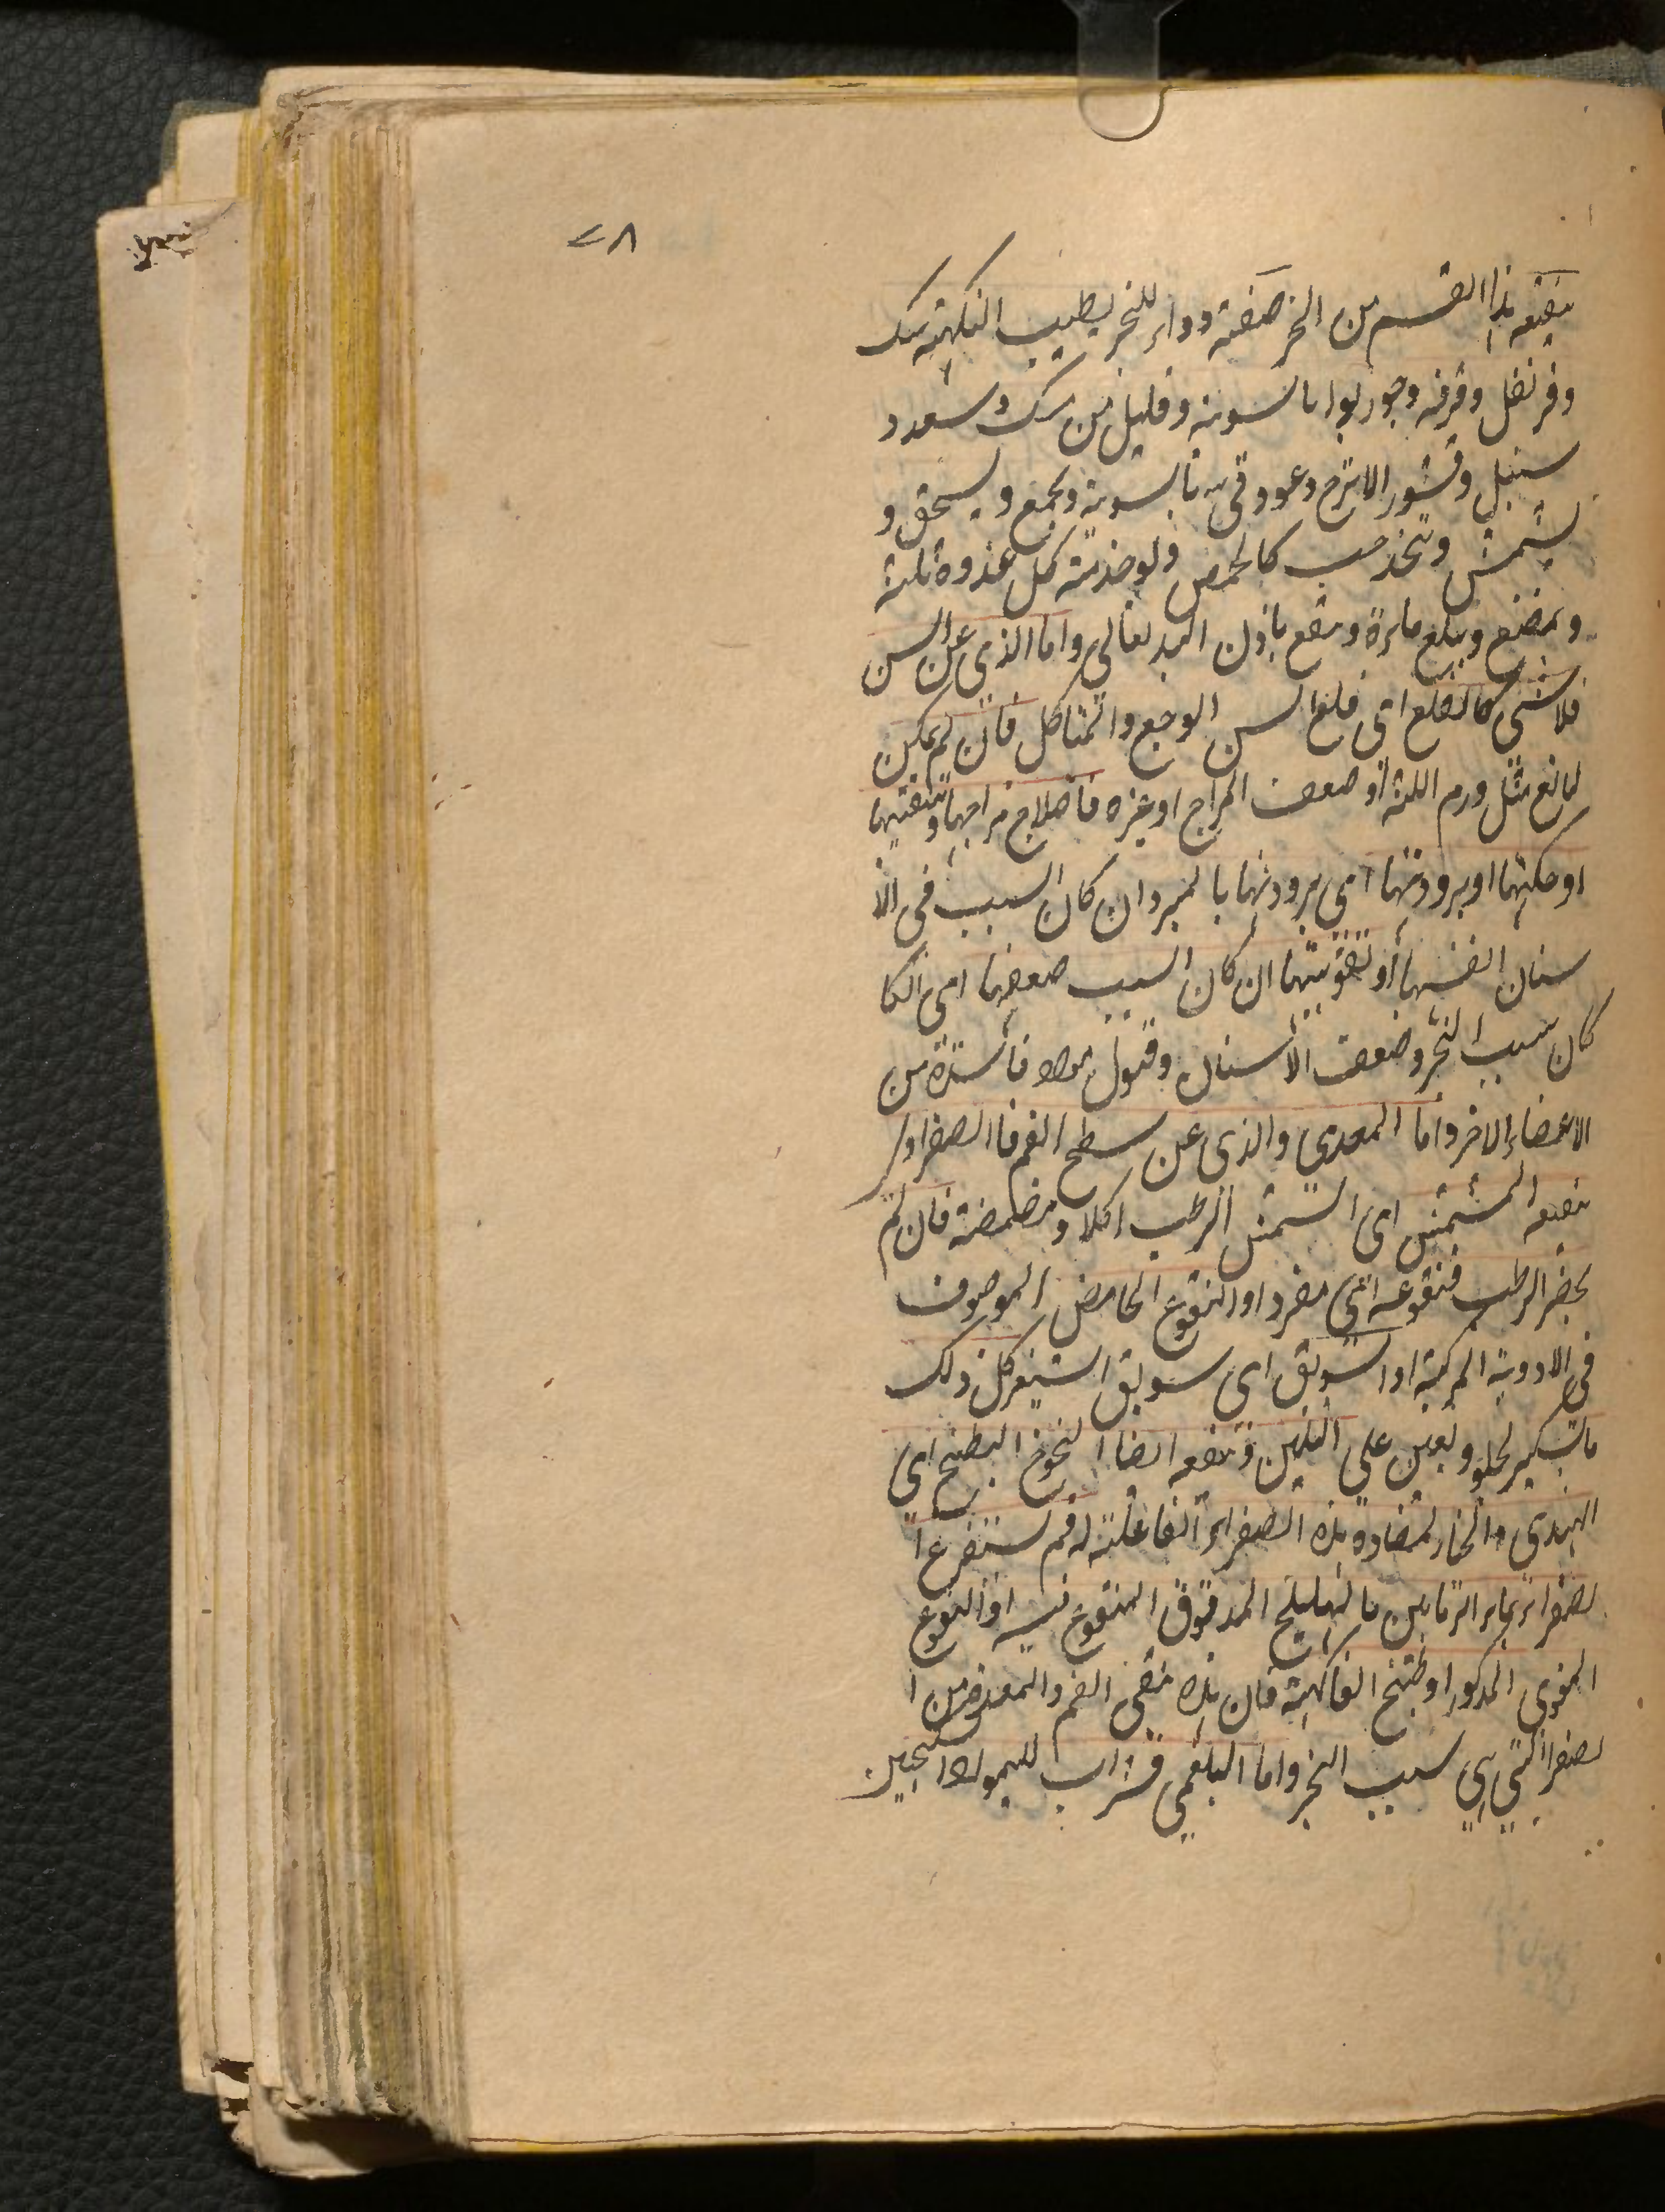 ٧٨
ينفعه هذا القسم من البخر صفته دواء للبخر يطيب النكهة سك
وقرنفل وقرفه وجوزبوا بالسوية وقليل من مسك وسعد و
سنبل وقشور الاترج وعود قى بالسوية ويجمع ويسحق و
بشمش ويتخذ حب كالحمص ويوخذ منه كل غدوة ثلثة
ويمضغ ويبلع ماءه وينفع باذن الله تعالى واما الذى عن السن
فلا شئ كالقلع اى قلع السن الوجع والمتاكل فان لم يمكن
لمانع مثل ورم اللثة او ضعف المزاج او غيره فاصلاح مزاجها وتنقيتها
او حكتها او برودتها اى برودتها بالمبرد ان كان السبب فى الا
سنان انفسها او تقويتها ان كان السبب ضعفها اى اذا كا
كان سبب البخر وضعف الاسنان وقبول مواد فاسدة من
الاعضاء الاخر واما المعدى والذى عن سطح الفم فالصفراوى
ينفعه المشمش اى المشمش الرطب اكلا ومضمضة فان لم
يحضر الرطب فنقوعه اى مفردا او النقوع الحامض الموصوف
فى الادوية المركبة او السويق اى سويق الشعير كل ذلك
بالسكر ليحلو ويعين على التليين وينفعه ايضا الخوخ البطيخ اى
الهندى والخيار لمضادة هذه الصفراء الفاعلة له ثم يستفرغ ا
لصفراء بماء الرمانين بالهليلج المدقوق المنقوع فيه او النقوع
المقوى المذكور او طبيخ الفاكهة فان هذه تنقى الفم والمعدة من ا
لصفراء التى هى سبب البخر واما البلغمى فشراب الليمو او السكنجبين